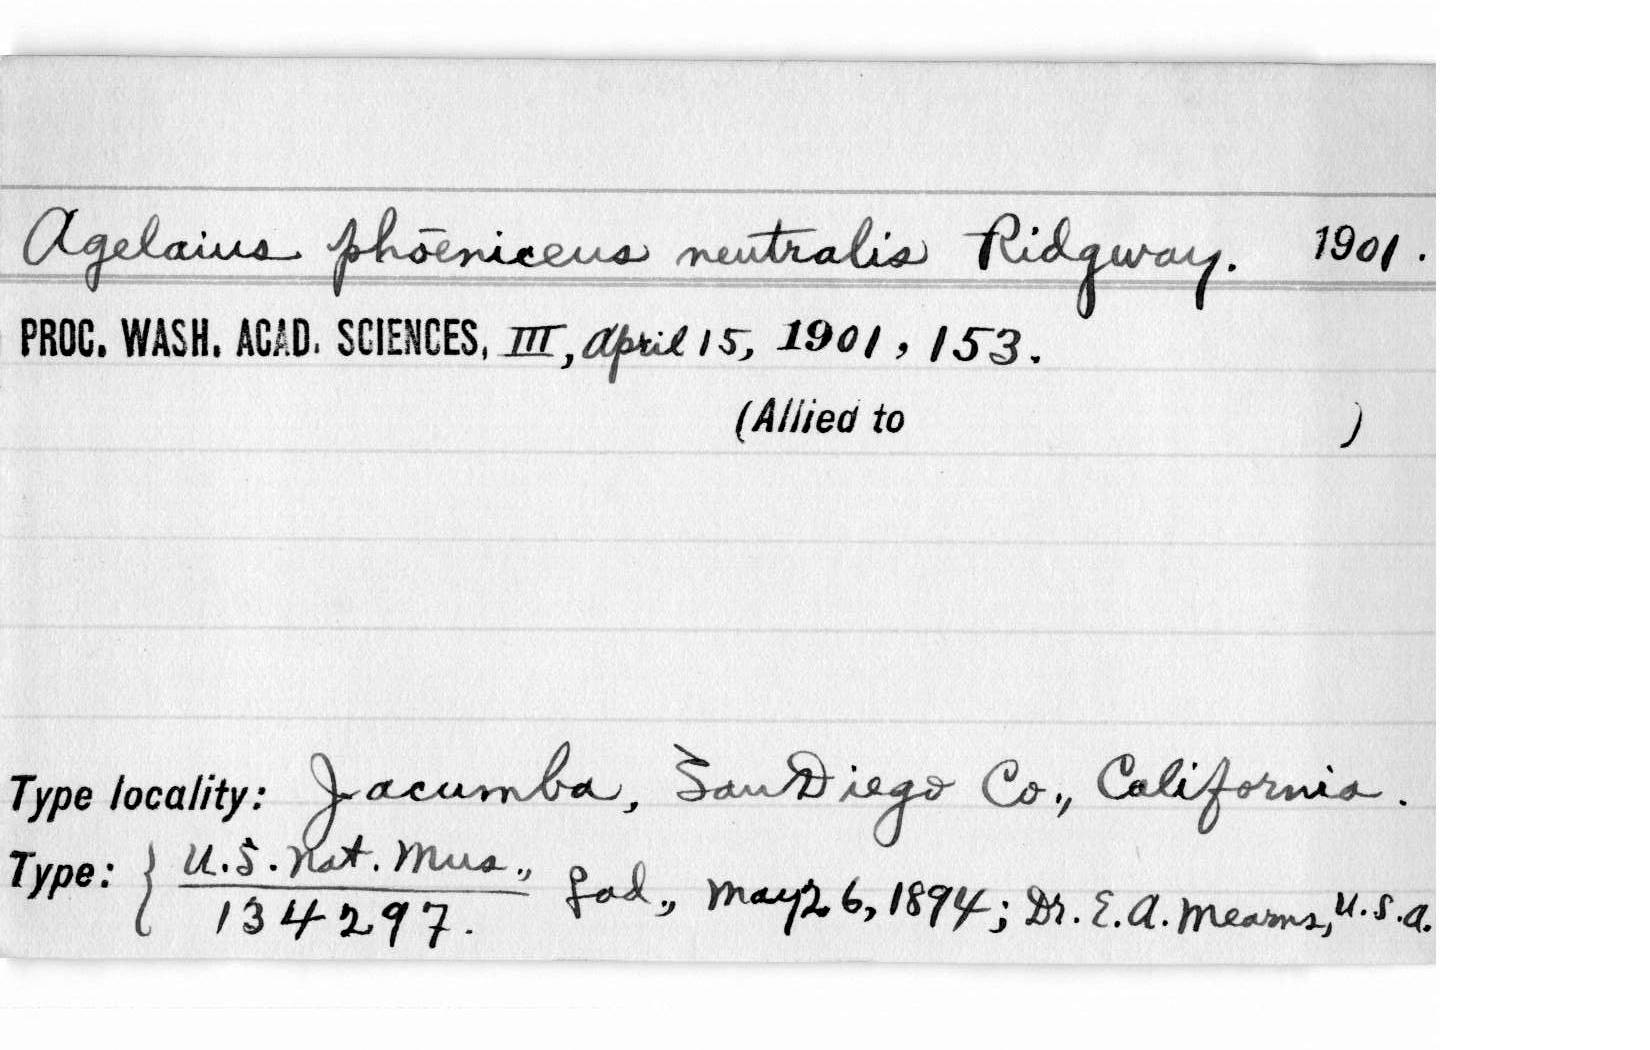 Agelaius phōeniceus neutralis Ridgway. 1901.
PROC. WASH. ACAD. SCIENCES, III, April 15, 1901, 153.
(Allied to )
Type locality: Jacumba, San Diego Co., California.
Type: { U.S. Nat. Mus., ad., May 26, 1894; Dr. E. A. Mearns, U.S.A.
134297.